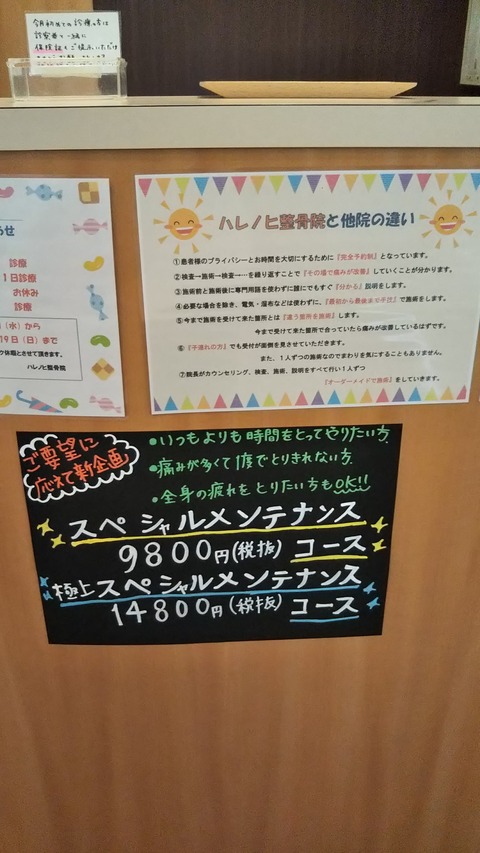 今月初めての診療の方は
診察券と一緒に
保険証もご提示いただけ
らせ
診療
1日診療
お休み
診療
(水)から
19日(日)まで
ク休暇とさせて頂きます。
ハレノヒ整骨院
ハレノヒ整骨院と他院の違い
①患者様のプライバシーとお時間を大切にするために『完全予約制』となっています。
②検査→施術→検査→…を繰り返すことで『その場で痛みが改善』していくことが分かります。
③施術前と施術後に専門用語を使わずに誰にでもすぐ『分かる』説明をします。
④必要な場合を除き、電気・湿布などは使わずに、『最初から最後まで手技』で施術をします。
⑤今まで施術を受けて来た箇所とは『違う箇所を施術』します。
今まで受けて来た箇所で合っていたら痛みが改善しているはずです。
⑥『子連れの方』でも受付が面倒を見させていただきます。
また、1人ずつの施術なのでまわりを気にすることもありません。
⑦院長がカウンセリング、検査、施術、説明をすべて行い1人ずつ
『オーダーメイドで施術』をしていきます。
ご要望に
応えて新企画
•いつもよりも時間をとってやりたい方
•痛みが多くて1度でとりきれない方
•全身の疲れをとりたい方もOK!!
スペシャルメンテナンス
9800円(税抜)コース
極上スペシャルメンテナンス
14800円(税抜)コース